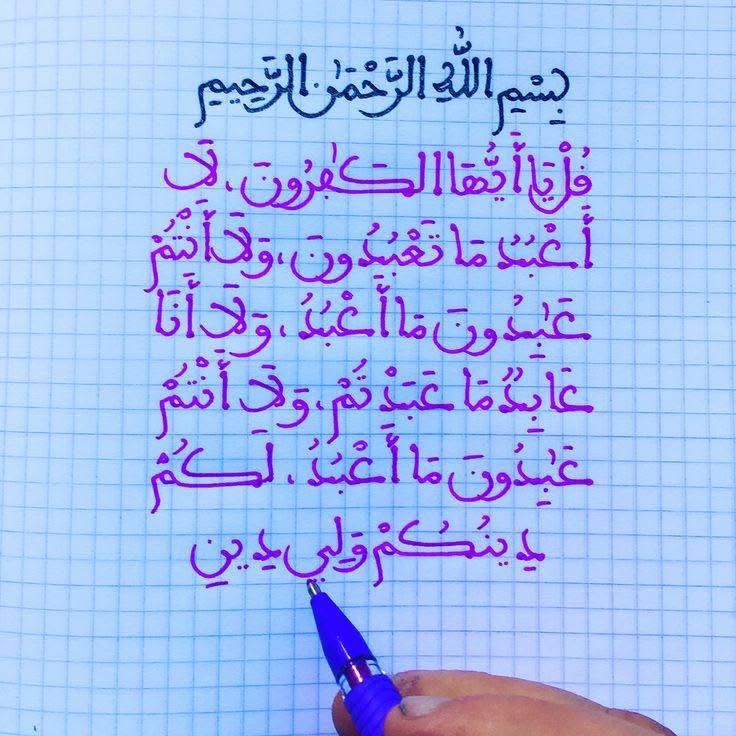 بِسْمِ اللَّهِ الرَّحْمَٰنِ الرَّحِيمِ
قُلْ يَا أَيُّهَا الكَٰفِرُونَ، لَا
أَعْبُدُ مَا تَعْبُدُونَ، وَلَا أَنْتُمْ
عَٰبِدُونَ مَا أَعْبُدُ، وَلَا أَنَا
عَابِدٌ مَا عَبَدْتُمْ، وَلَا أَنْتُمْ
عَٰبِدُونَ مَا أَعْبُدُ، لَكُمْ
دِينُكُمْ وَلِيَ دِينِ